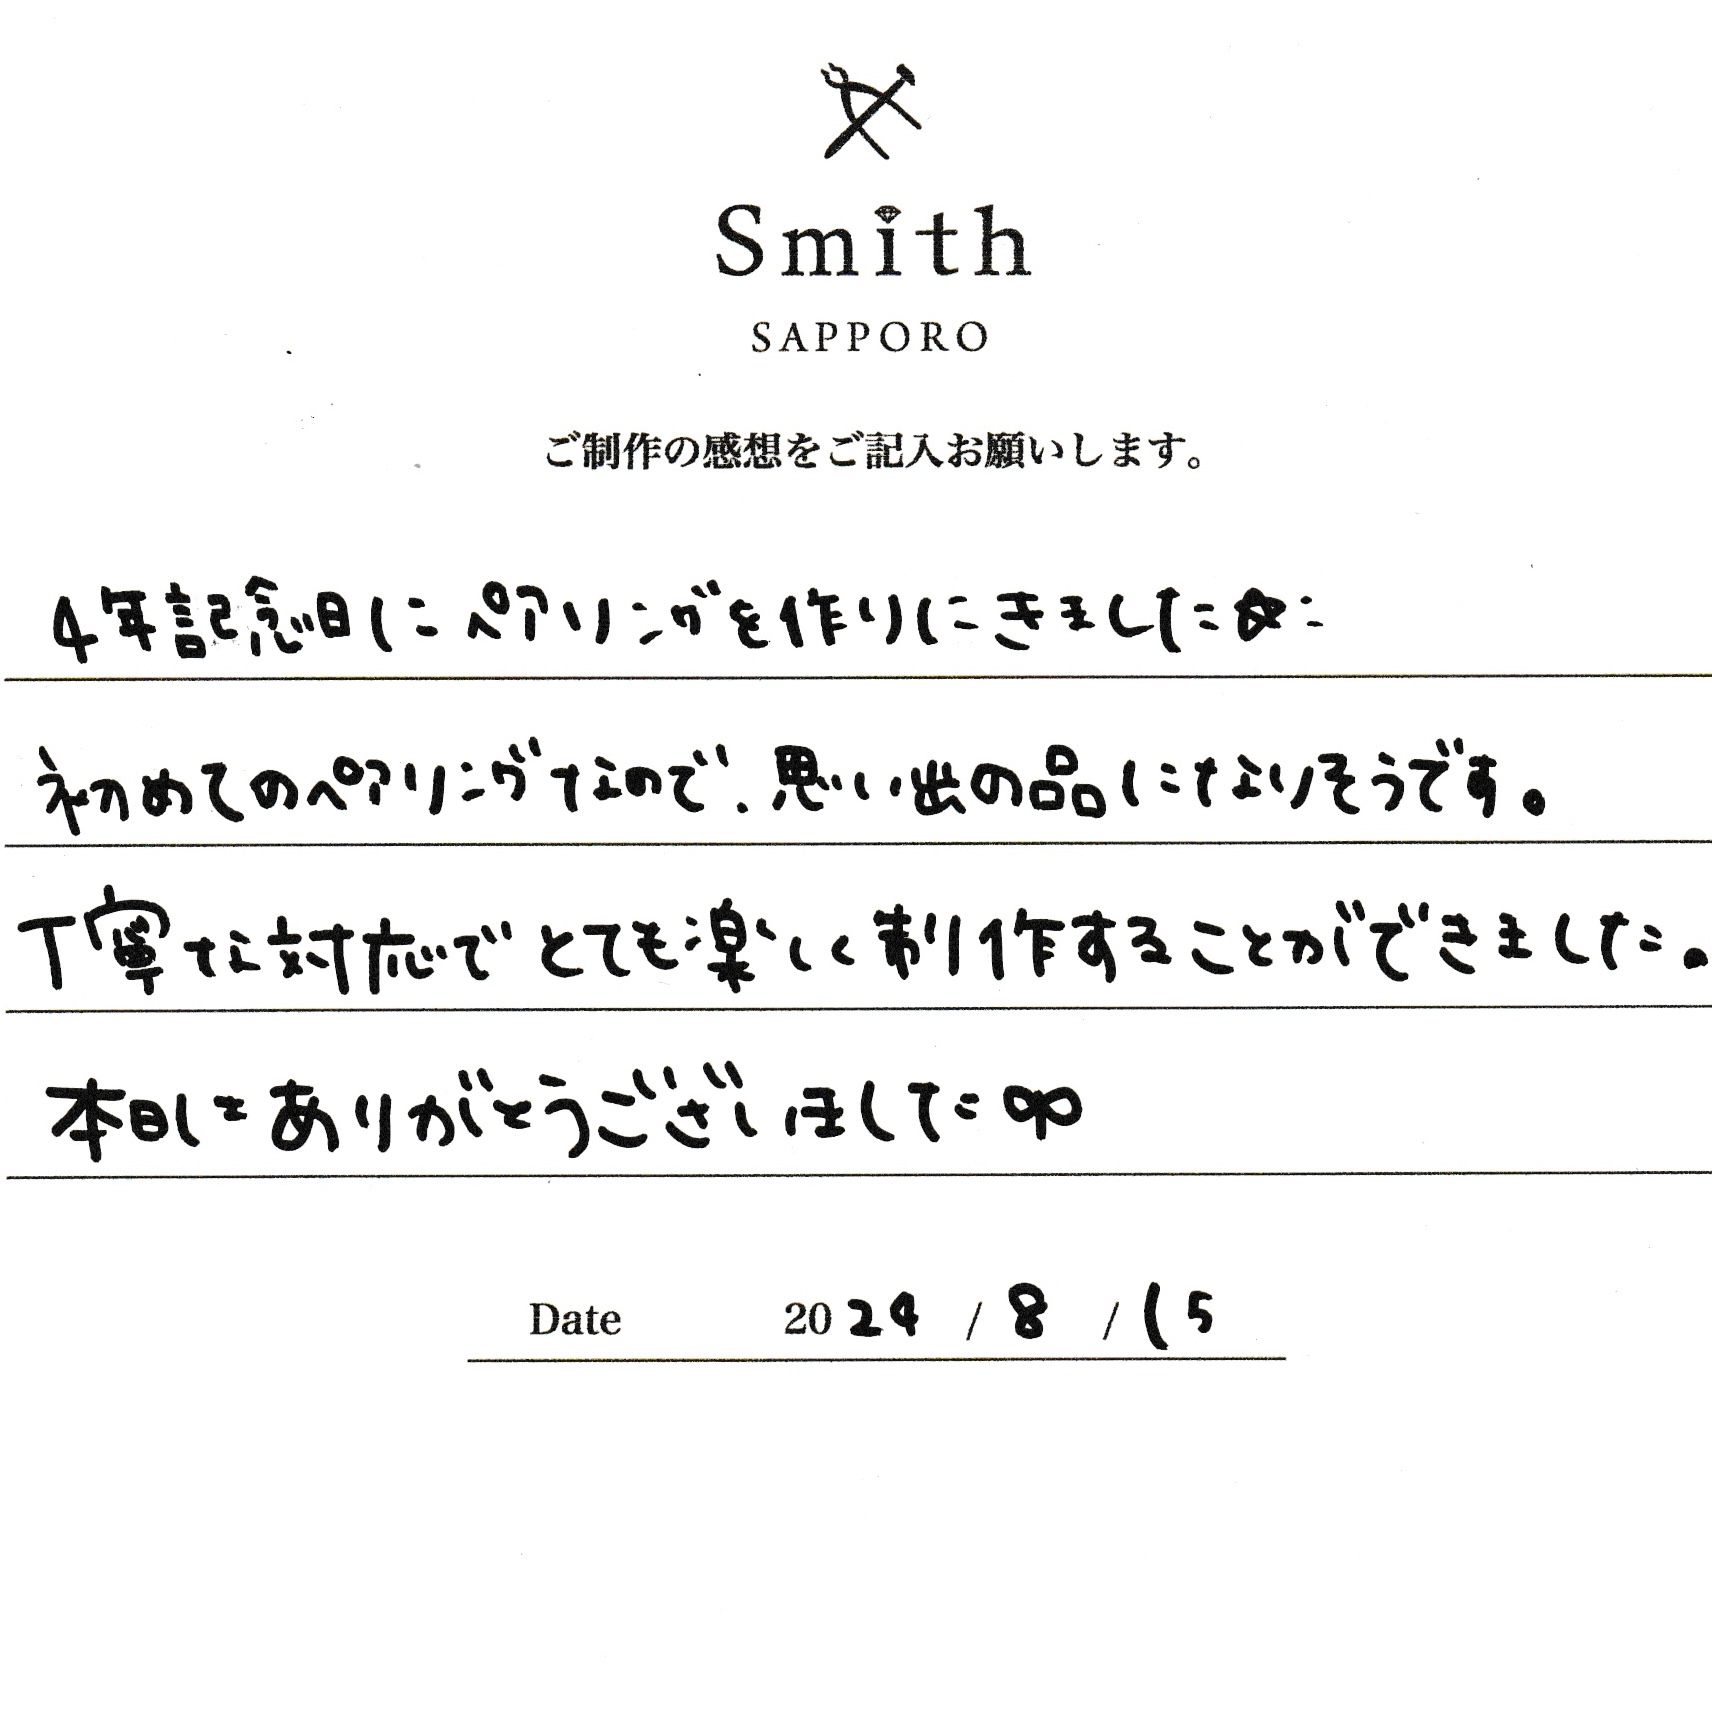 Smith
SAPPORO
ご制作の感想をご記入お願いします。
4年記念日にペアリングを作りにきました☆ミ
初めてのペアリングなので、思い出の品になりそうです。
丁寧な対応でとても楽しく制作することができました。
本日はありがとうございました
Date 2024 / 8 / 15